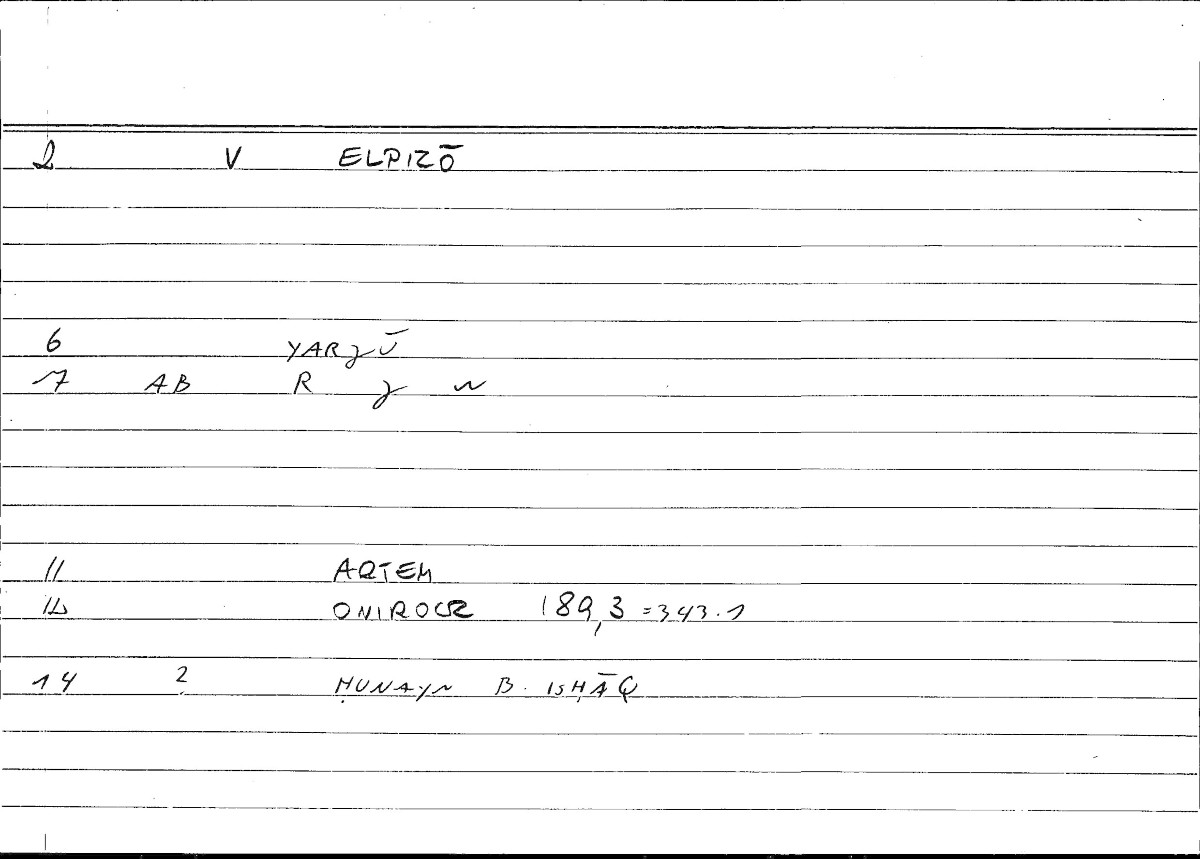 2 V ELPIZŌ
6 YARJŪ
7 AB R J W
11 ARTEM
12 ONIROCR 189,3 = 343.1
14 2 ḤUNAYN B. ISḤĀQ